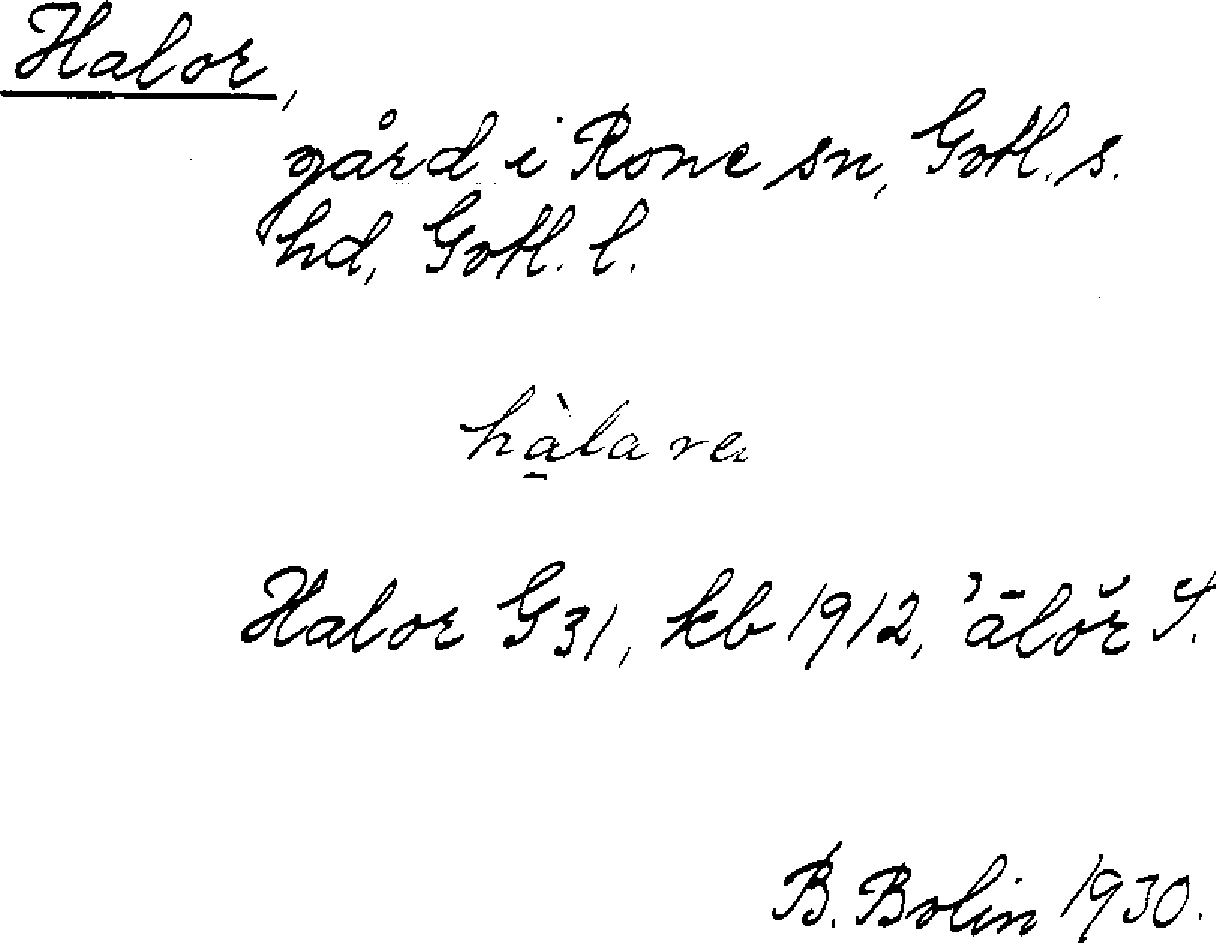 Halor,
gård i Rone sn, Gotl. s.
hd, Gotl. l.
hàlare
Halor G 31, kb 1912, ʾālŏr
B. Bolin 1930.